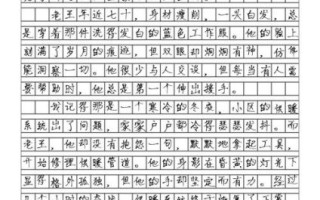 老王年近七十，身材瘦削，一头白发，总
是穿着那件洗得发白的蓝色工作服。他的脸上
刻满了岁月的痕迹，但双眼却炯炯有神，仿佛
能洞察一切。他很少与人交谈，但每当有人需
要帮助时，他总是第一个伸出援手。
我记得那是一个寒冷的冬夜，小区的供暖
系统出了问题，家家户户都冷得瑟瑟发抖。而
老王，他却没有抱怨一句，默默地拿起工具，
开始修理供暖管道。他的身影在昏黄的灯光下
显得格外孤独，但他的手却坚定而有力。经过